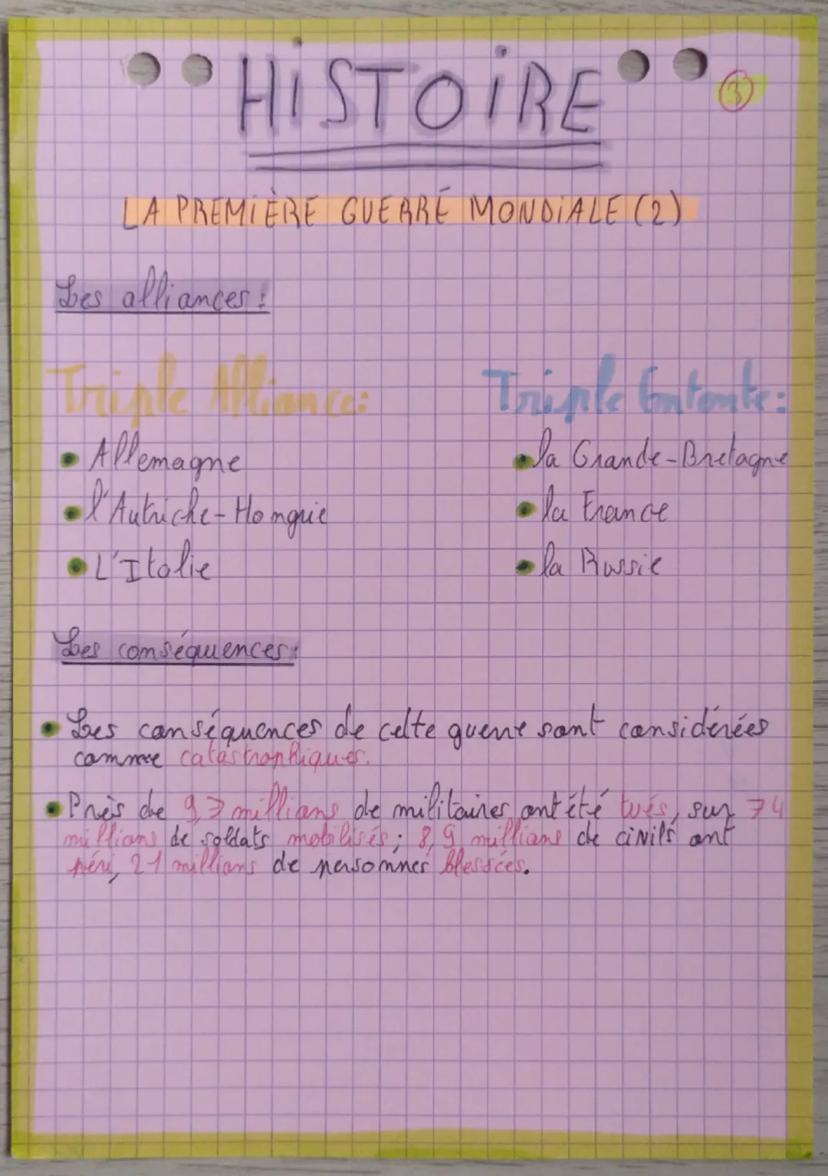 HiSTOiRE
3
LA PREMIÈRE GUERRE MONDiALE (2)
Les alliances :
Triple Alliance: Triple Entente:
• Allemagne • la Grande-Bretagne
• l'Autriche-Hongrie • la France
• L'Italie • la Russie
Les conséquences:
• Les conséquences de cette guerre sont considérées
comme catastrophiques.
• Près de 9,7 millions de militaires ont été tués, sur 74
millions de soldats mobilisés ; 8,9 millions de civils ont
péri, 21 millions de personnes blessées.